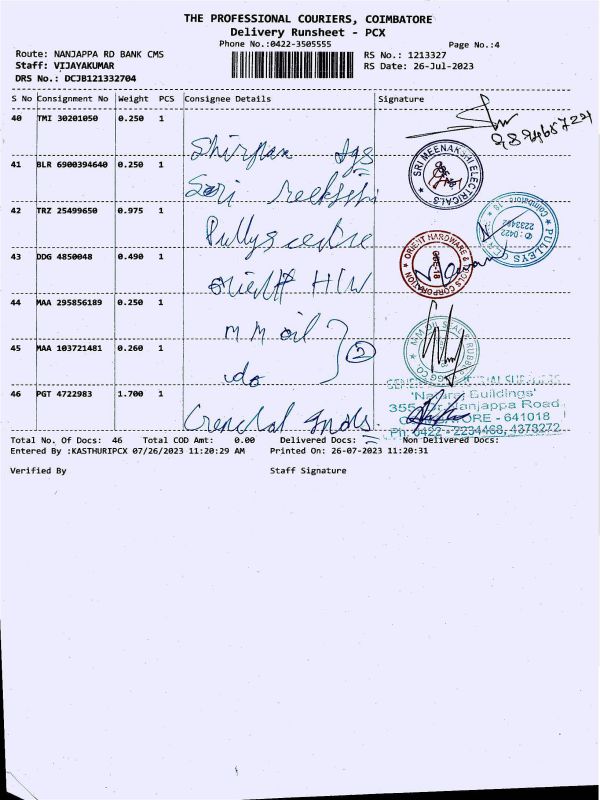 THE PROFESSIONAL COURIERS, COIMBATORE
Delivery Runsheet - PCX
Phone No.:0422-3505555
Page No.:4
Route: NANJAPPA RD BANK CMS
RS No.: 1213327
Staff: VIJAYAKUMAR
RS Date: 26-Jul-2023
DRS No.: DCJB121332704
S No Consignment No Weight PCS Consignee Details Signature
40 TMI 30201050 0.250 1
41 BLR 6900394640 0.250 1
SRI MEENAKSHI ELECTRICALS
42 TRZ 25499650 0.975 1
Pullys centre
PULLEYS
Coimbatore - 18
0422
2233482
43 DDG 4850048 0.490 1
orient H/W
ORIENT HARDWARE & TOOLS CORPORATION
CBE-18
44 MAA 295856189 0.250 1
M.M oil
2
M.M OIL SEAL & RUBB
45 MAA 103721481 0.260 1
do
46 PGT 4722983 1.700 1
General Inds
'Nataraj Buildings'
355, Nanjappa Road
COIMBATORE - 641018
Ph: 0422 - 2234468, 4378272
Total No. Of Docs: 46 Total COD Amt: 0.00 Delivered Docs: Non Delivered Docs:
Entered By :KASTHURIPCX 07/26/2023 11:20:29 AM Printed On: 26-07-2023 11:20:31
Verified By Staff Signature